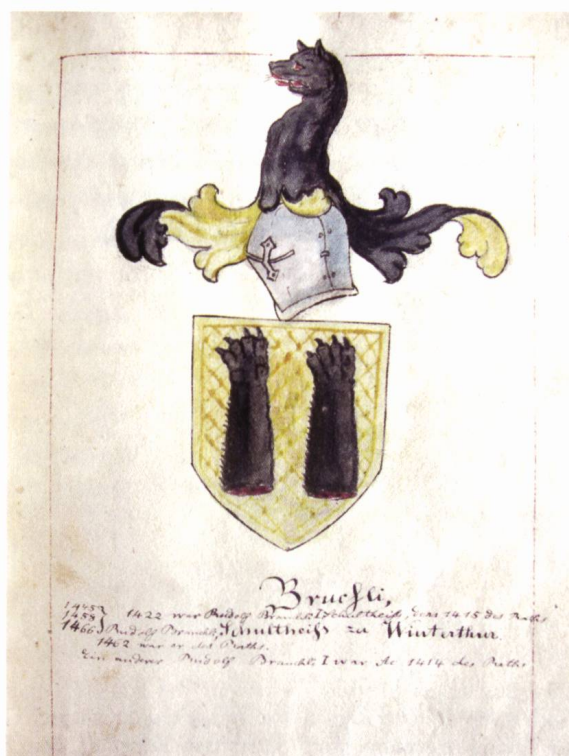 Bruchli,
1445 1422 war Rudolf Brauchli Schultheiß, des Raths
1458
1466 Rudolf Brauchli, Schultheiß zu Winterthur.
1462 war er des Raths.
Ein anderer Rudolf Brauchli, I war Ao 1414 des Raths